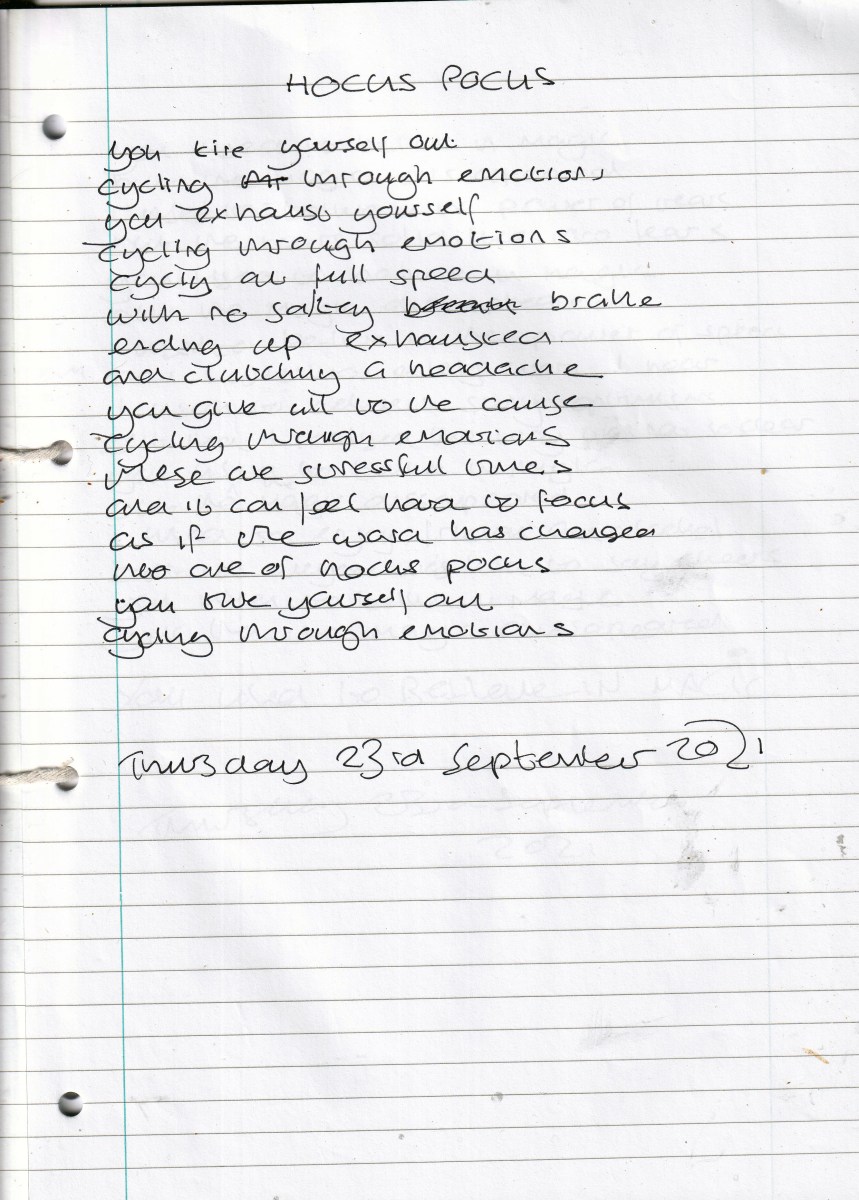 HOCUS POCUS
you tire yourself out
cycling through emotions
you exhaust yourself
cycling through emotions
cycling at full speed
with no safety brake
ending up exhausted
and clutching a headache
you give all to the cause
cycling through emotions
these are stressful times
and it can feel hard to focus
as if the word has changed
into one of hocus pocus
you tire yourself out
cycling through emotions
Thursday 23rd September 2021